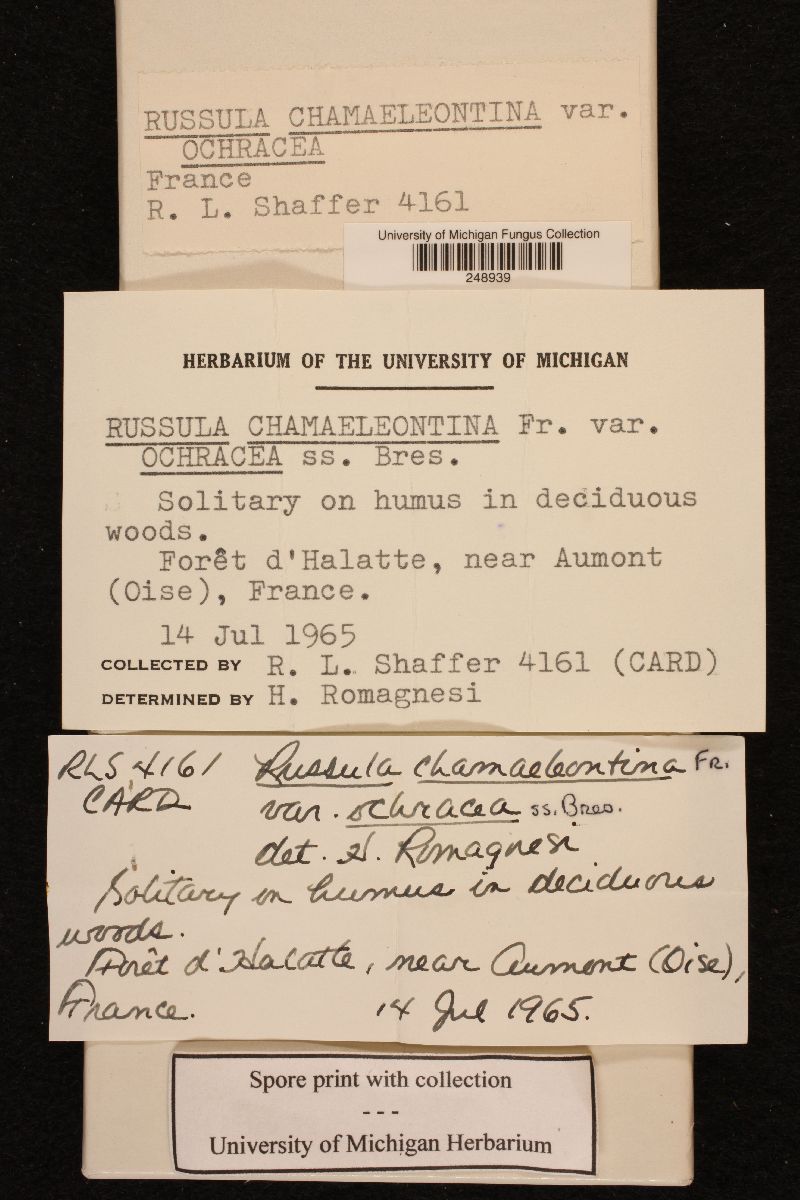 RUSSULA CHAMAELEONTINA var.
OCHRACEA
France
R. L. Shaffer 4161
University of Michigan Fungus Collection
248939
HERBARIUM OF THE UNIVERSITY OF MICHIGAN
RUSSULA CHAMAELEONTINA Fr. var.
OCHRACEA ss. Bres.
Solitary on humus in deciduous
woods.
Forêt d'Halatte, near Aumont
(Oise), France.
14 Jul 1965
COLLECTED BY R. L. Shaffer 4161 (CARD)
DETERMINED BY H. Romagnesi
RLS 4161 Russula chamaeleontina FR.
CARD var. ochracea ss. Bres.
det. H. Romagnesi
Solitary on humus in deciduous
woods.
Forêt d'Halatte, near Aumont (Oise),
France. 14 Jul 1965.
Spore print with collection
---
University of Michigan Herbarium